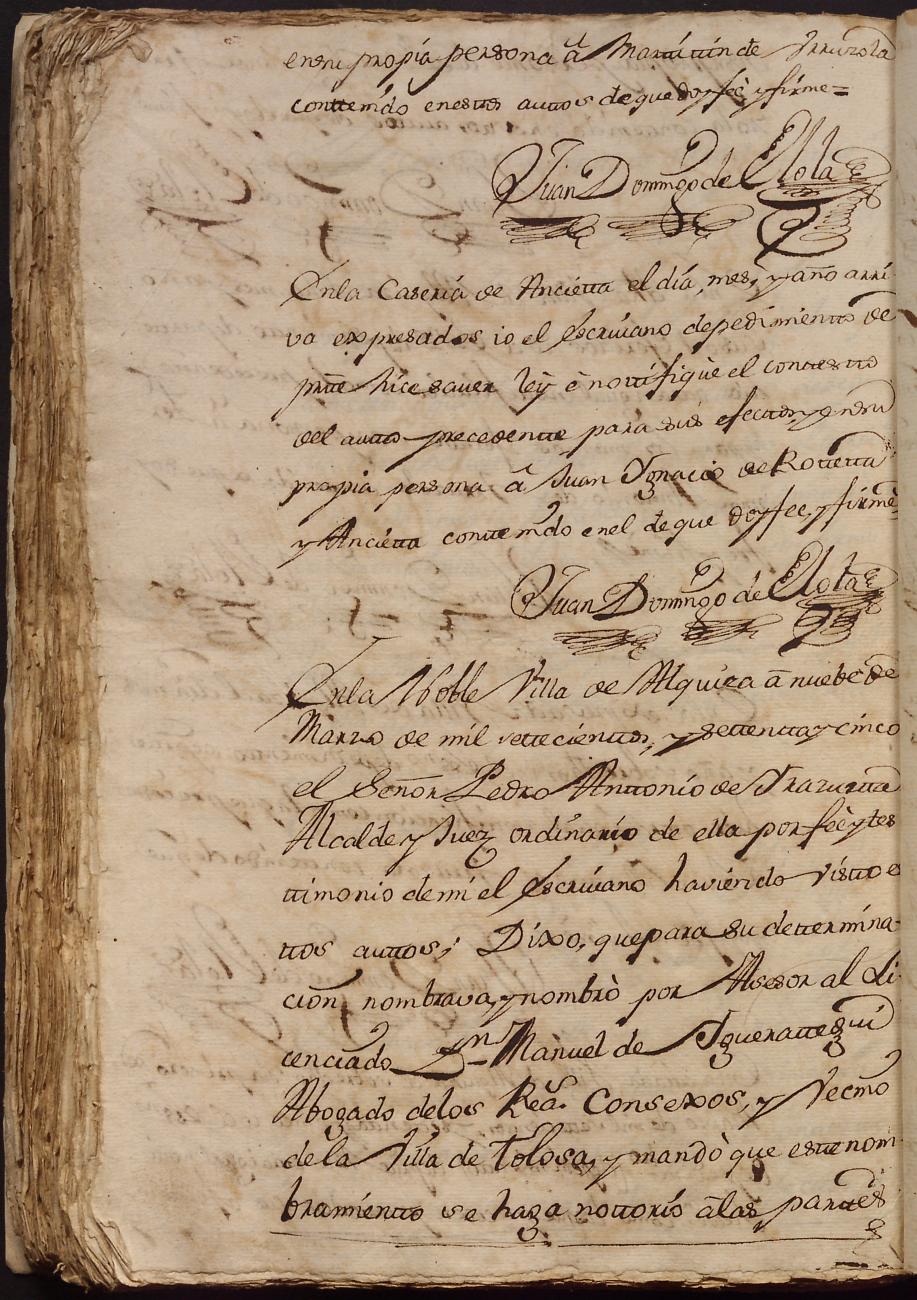 en su propia persona â Martin de Yrruzola
conttenido en estos auttos de que doy feè y firmè=
Juan Domingo de Elola
En la Caseria de Ancietta el dia, mes, y año arri-
va expresados io el Escrivano de pedimientto de
partte hice saver ley è nottifiquè el contestto
del autto precedentte para sus efecttos y en su
propia persona â Juan Ygnacio de Rottetta
y Ancietta conttenido en el de que doy fee, y firmè
Juan Domingo de Elola
En la Noble Villa de Alquiza â nuebe de
Marzo de mil settecienttos, y settentta y cinco
el Señor Pedro Anttonio de Yrazuztta
Alcalde y Juez ordinario de ella por feè y tes
ttimonio de mi el Escrivano haviendo vistto es
ttos auttos; Dixo, que para su determina-
cion nombrava, y nombrò por Asesor al Li-
cenciado Dn Manuel de Ygueratteguì
Abogado de los Reas. Consexos, y Vecino
de la Villa de Tolosa, y mandò que este nom
bramientto se haga nottorio â las parttes